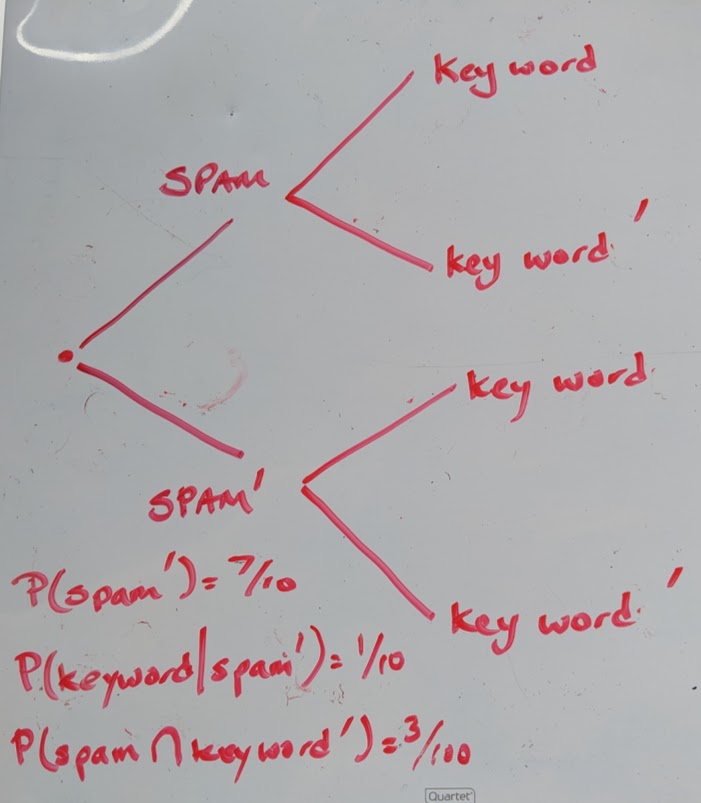 key word
SPAM
key word'
key word
SPAM'
key word'
P(spam')= 7/10
P(keyword|spam')= 1/10
P(spam ∩ keyword')= 3/100
Quartet